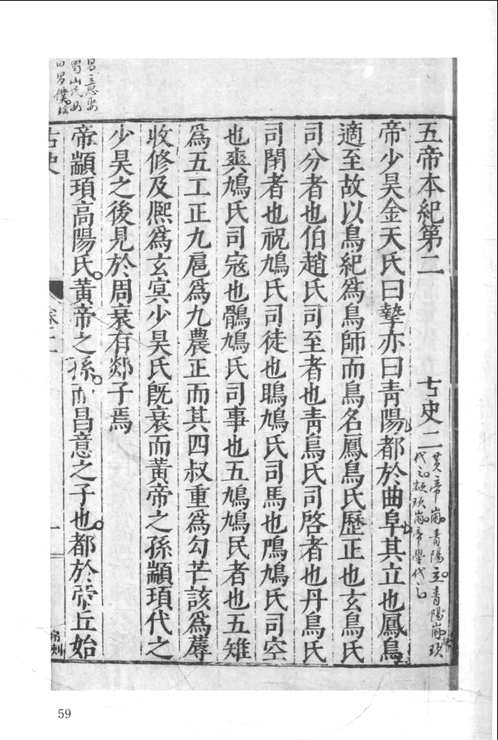 五帝本紀第二 古史二
帝少昊金天氏曰摯亦曰青陽都於曲阜其立也鳳鳥
適至故以鳥紀為鳥師而鳥名鳳鳥氏歷正也玄鳥氏
司分者也伯趙氏司至者也青鳥氏司啓者也丹鳥氏
司閉者也祝鳩氏司徒也鴡鳩氏司馬也鳲鳩氏司空
也爽鳩氏司寇也鶻鳩氏司事也五鳩鳩民者也五雉
為五工正九扈為九農正而其四叔重為勾芒該為蓐
收修及熙為玄冥少昊氏旣衰而黃帝之孫顓頊代之
少昊之後見於周衰有郯子焉
帝顓頊高陽氏黃帝之孫而昌意之子也都於帝丘始
古史
卷二
一
黃帝崩青陽立青陽崩
代之顓頊崩帝嚳代之
59